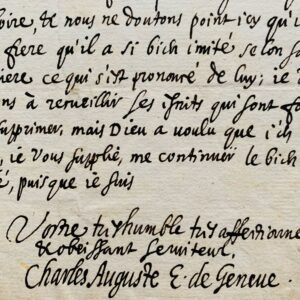 oire, & nous ne doutons point icy qu'il
fiere qu'il a si bien imité selon sa
iere ce qui s'est prononcé de luy; ie
ns à recueillir ses
supprimer, mais Dieu a voulu que i'en
, ie vous supplie, me continuer le bien
é, puisque ie suis
Vostre tres humble tres affectionne
& obeissant serviteur,
Charles Auguste E. de Geneve.